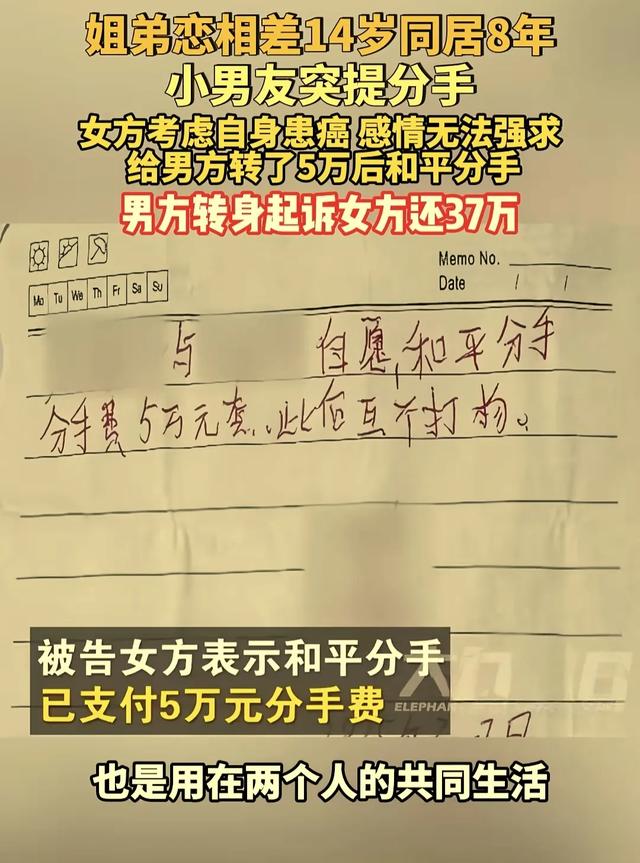 姐弟恋相差14岁同居8年
小男友突提分手
女方考虑自身患癌 感情无法强求
给男方转了5万后和平分手
男方转身起诉女方还37万
Memo No.
Date / /
Mo Tu We Th Fr Sa Su
与 自愿,和平分手
分手费5万元整、此后互不打扰。
被告女方表示和平分手
已支付5万元分手费
ELEPHANT
也是用在两个人的共同生活